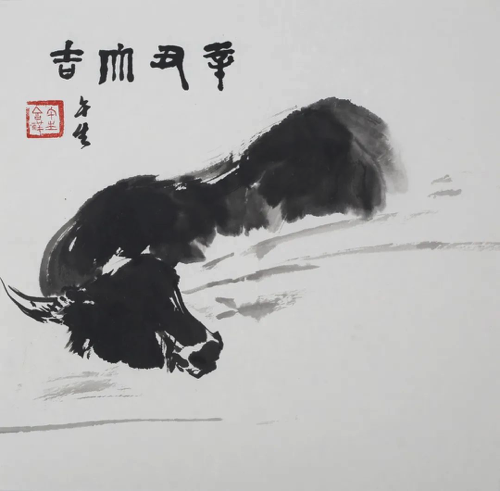 辛丑大吉
午生